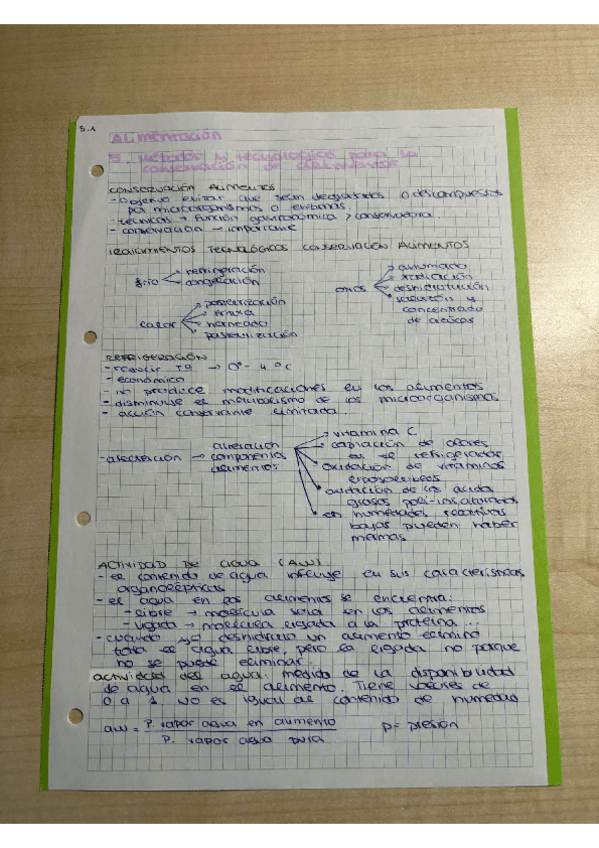 5.1
Alimentación
5 Métodos y tecnología para la
conservación de alimentos
CONSERVACIÓN ALIMENTOS
- objetivo evitar que sean degradados o descompuestos
por microorganismos o enzimas.
- técnicas → función gastronómica > conservadora.
- conservación → importante
TRATAMIENTOS TECNOLÓGICOS CONSERVACIÓN ALIMENTOS
frío
refrigeración
congelación
calor
pasterización
horneado
otros
ahumado
irradiación
deshidratación
salazón y
concentrado
de azúcar
REFRIGERACIÓN
- reducir Tª → 0º - 4ºC
- económico
- no produce modificaciones en los alimentos
- disminuye el metabolismo de los microorganismos
- acción conservante limitada.
→ alteración
componentes
alimentos
vitamina C
captación de olores
en el refrigerados
oxidación de vitaminas
liposolubles
oxidación de los ácidos
grasos poli-insaturados
en humedades relativas
bajas pueden haber
mermas
ACTIVIDAD DE AGUA (AW)
- el contenido de agua influye en sus características
organolépticas
- el agua en los alimentos se encuentra:
- libre → molécula sola en los alimentos
- ligada → molécula ligada a la proteína ...
- cuando yo deshidrato un alimento elimino
toda el agua libre, pero la ligada no porque
no se puede eliminar.
actividad del agua: medida de la disponibilidad
de agua en el alimento. Tiene valores de
0 a 1 no es igual al contenido de humedad
aw = P. vapor agua en alimento / P. vapor agua pura
P = presión